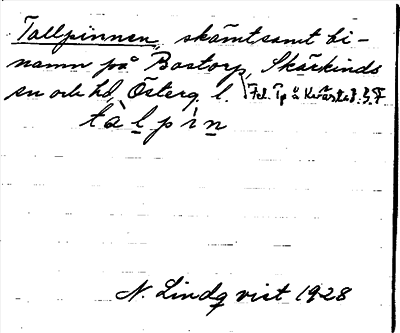 Tallpinnen, skämtsamt bi-
namn på Bostorp, Skärkinds
sn och hd, Österg. l.
tàlpìn
N. Lindqvist 1928